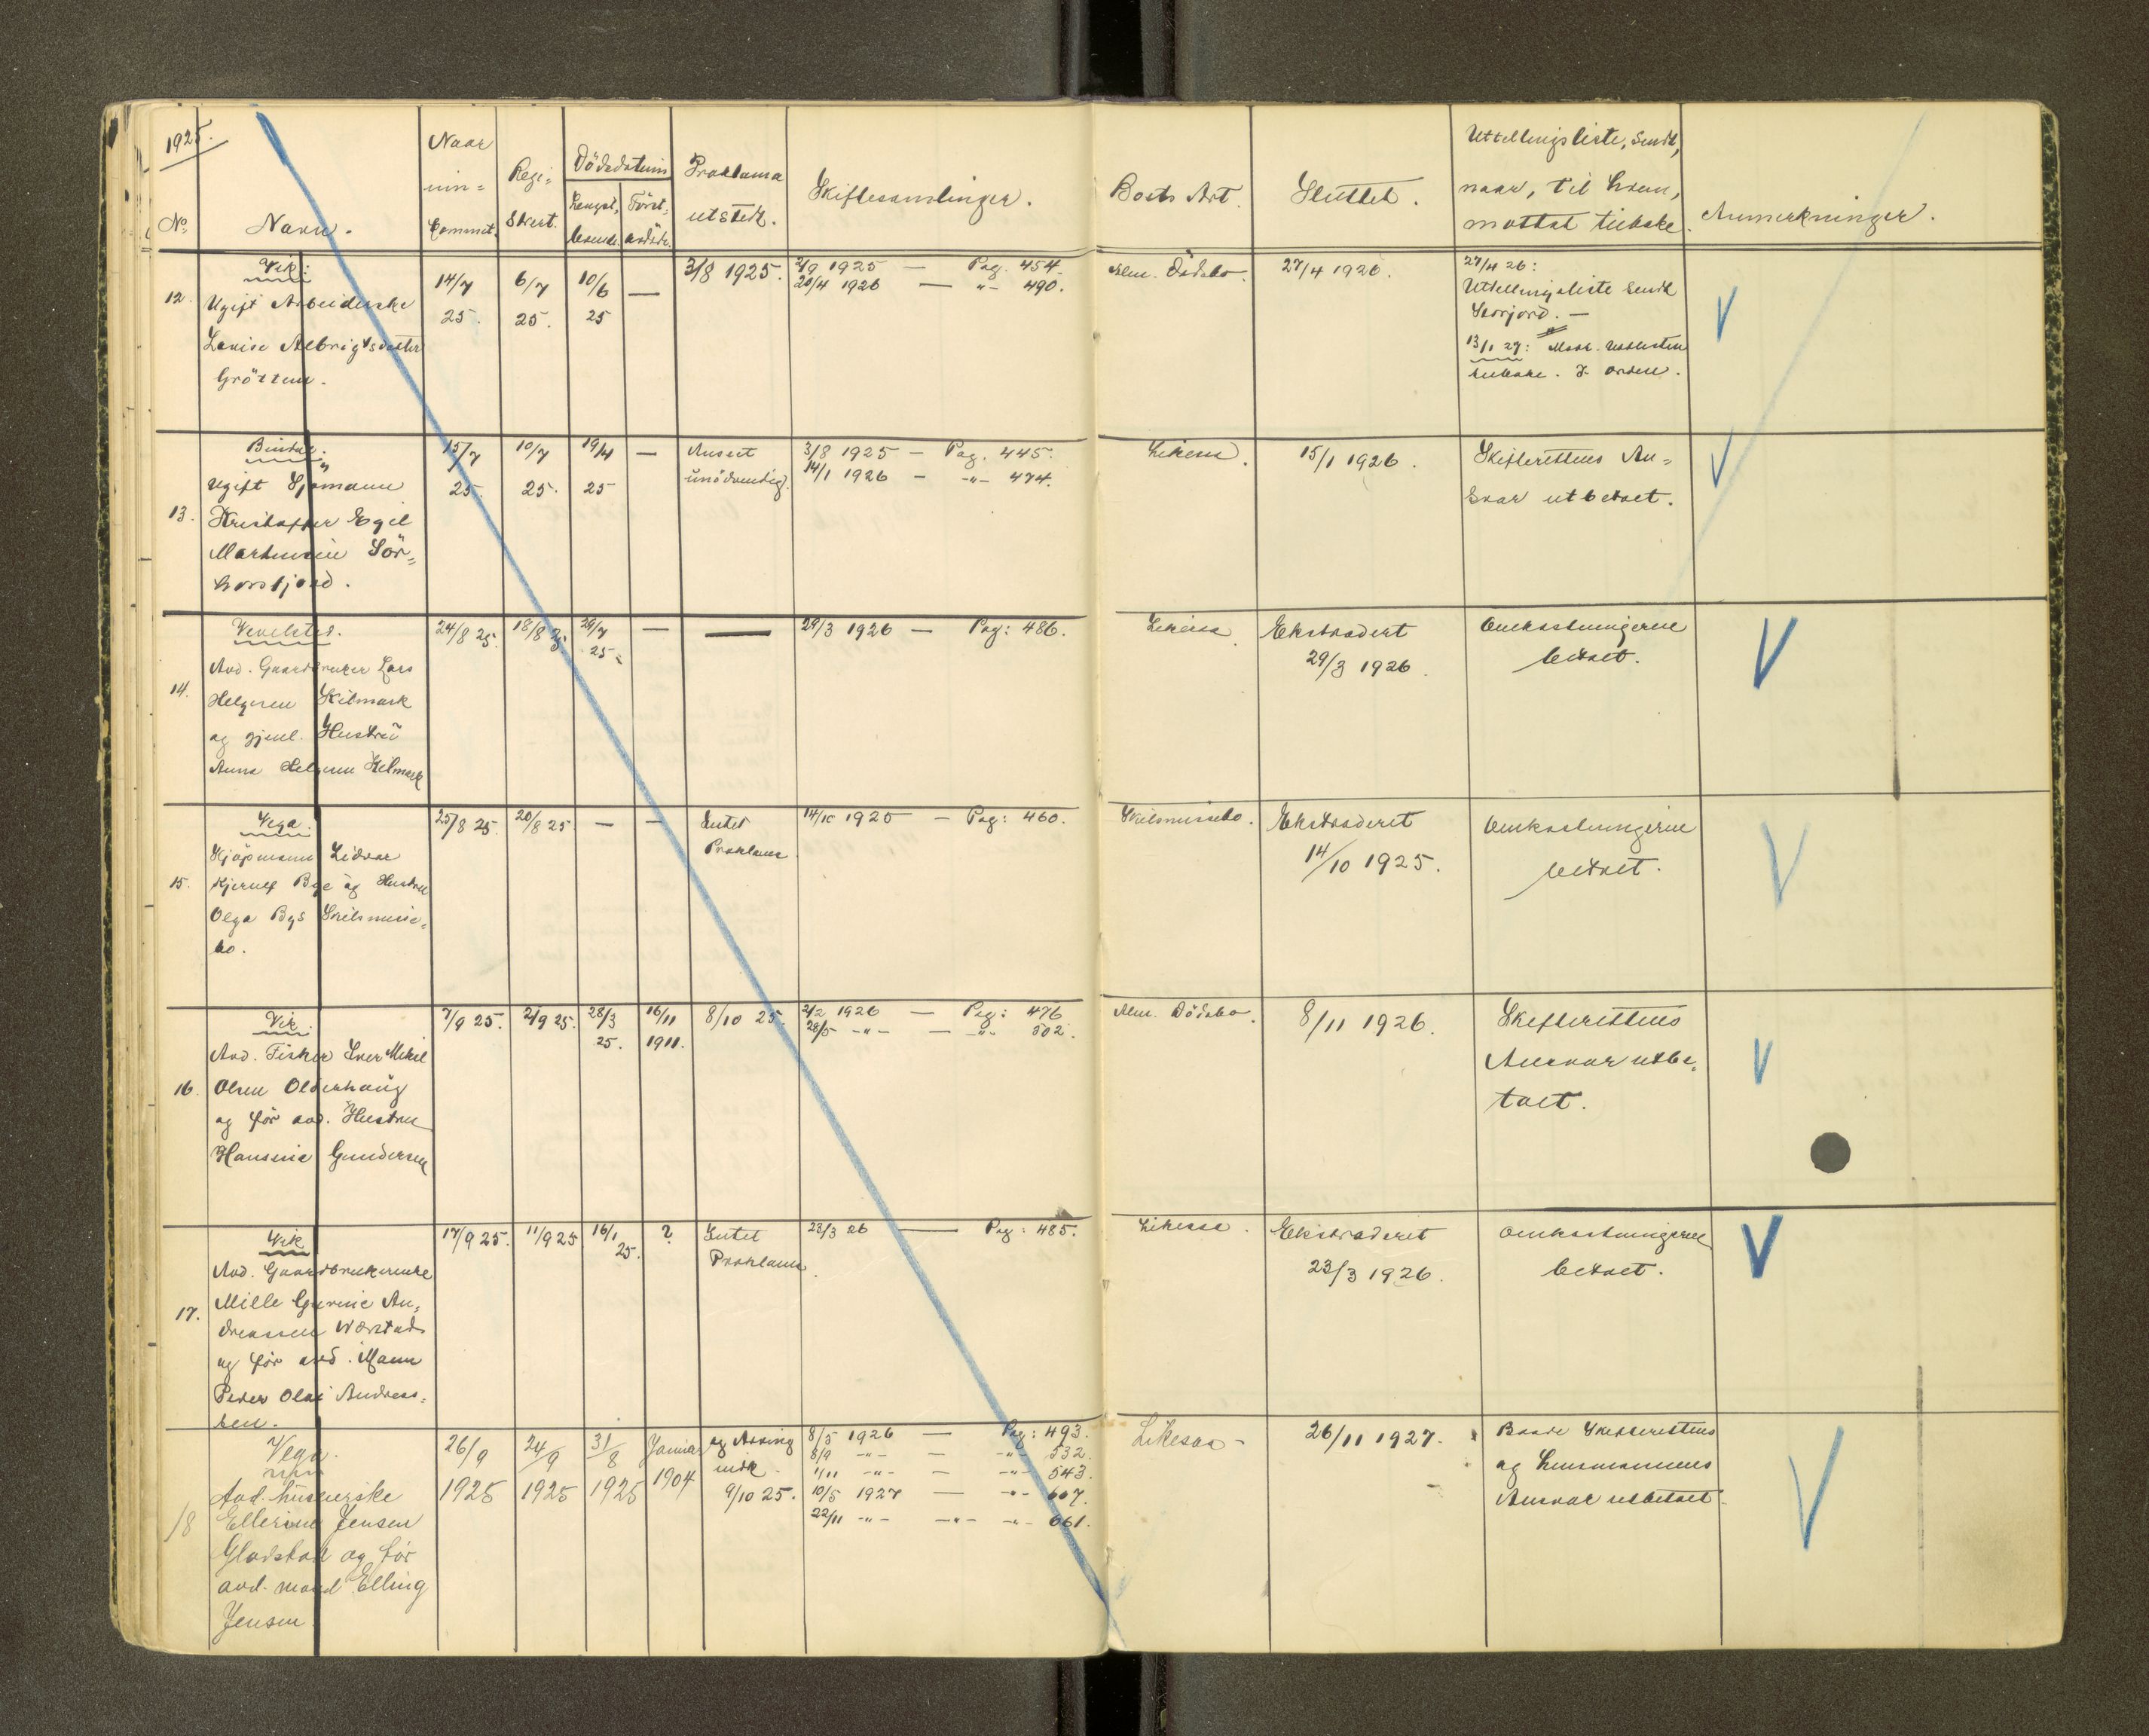 1925.
No.
Navn.
Naar
inn=
kommet.
Regi=
strert.
Dödsdatum
Lengst=
levende.
Först=
avdöde.
Proklama
utstedt.
Skiftesamlinger.
Boets Art.
Sluttet.
Uttellingsliste, sendt,
naar, til hvem,
mottat tilbake.
Anmerkninger.
12.
Vik:
Ugift Arbeiderske
Lovise Albrigtsdatter
Gröttem.
14/7
25.
6/7
25.
10/6
25
—
3/8 1925.
2/9 1925 — Pag. 454.
20/4 1926 — -"- 490.
Alm. Dödsbo.
27/4 1926.
27/4 26:
Uttellingsliste sendt
Storjord. —
13/1 27: Mott. utt.listen
tilbake. I orden.
13.
Bindal.
Ugift Sjømann
Kristoffer Egil
Martinsen Sör=
horsfjord.
15/7
25.
10/7
25.
19/4
25
—
Ansees
unödvendig.
3/8 1925 — Pag. 445.
14/1 1926 — -"- 474.
Likesaa.
15/1 1926.
Skifterettens An=
svar utbetalt.
14.
Vevelstad.
Avd. Gaardbruker Lars
Helgesen Skilmark
og gjenl. Hustru
Anna Helgesen Skilmark
24/8 25.
18/8 25
29/7
25.
—
—
29/3 1926 — Pag: 486.
Likesaa.
Ekstradert
29/3 1926.
Omkostningerne
betalt.
15.
Vega.
Kjöpmann Lidvar
Kjerulf Bye og Hustru
Olga Bys Skilsmisse=
bo.
25/8 25.
20/8 25.
—
—
Intet
Proklama
14/10 1925 — Pag: 460.
Skilsmissebo.
Ekstraderet
14/10 1925.
Omkostningerne
betalt.
16.
Vik.
Avd. Fisker Iver Mikal
Olsen Olderhaug
og för avd. Hustru
Hansine Gundersen
7/9 25.
2/9 25.
28/3
25.
16/11
1911.
8/10 25.
2/2 1926 — Pag: 476
28/5 -"- — -"- 502.
Alm. Dödsbo.
8/11 1926.
Skifterettens
Ansvar utbe=
talt.
17.
Vik
Avd. Gaardbrukerenke
Mille Gurine An=
dreassen
og för avd. Mann
Peder Olai Andreas=
sen.
17/9 25.
11/9 25
16/1
25.
?
Intet
Proklama.
23/3 26 — Pag: 485.
Likesaa.
Ekstraderet
23/3 1926.
Omkostningerne
betalt.
18
Vega.
Avd. huseierske
Ellerine Jensen
Gladstad og för
avd. mand Elling
Jensen
26/9
1925
24/9
1925
31/8
1925
Januar
1904
og Arving
indk.
9/10 25.
8/5 1926 — Pag: 493.
8/9 -"- — -"- 532.
1/11 -"- — -"- 543.
10/5 1927 — -"- 607.
22/11 -"- -"- -"- 661.
Likesaa -
26/11 1927.
Baade Skifterettens
og Lensmannens
Ansvar utbetalt.